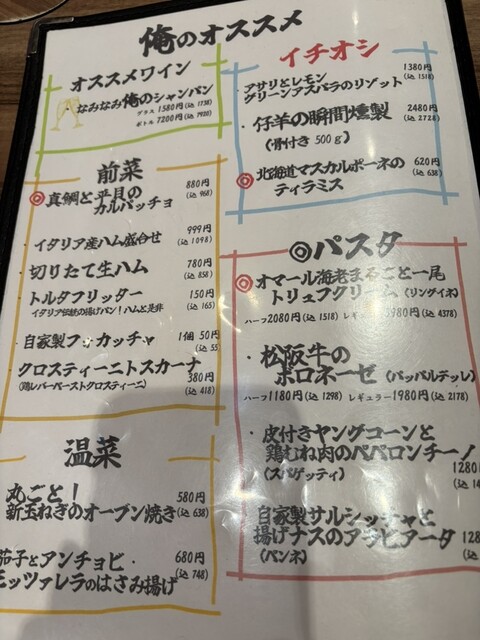 俺のオススメ
オススメワイン
なみなみ俺のシャンパン
グラス 1580円(込 1738)
ボトル 7200円(込 7920)
前菜
◎真鯛と平貝の
カルパッチョ
880円
(込 968)
・イタリア産ハム盛合せ
999円
(込 1098)
・切りたて生ハム
780円
(込 858)
・トルタフリッター
イタリア伝統の揚げパン！ハムと是非
150円
(込 165)
・自家製フォカッチャ
1個 50円
(込 55
・クロスティーニトスカーナ
(鶏レバーペーストクロスティーニ)
380円
(込 418)
温菜
丸ごと！
新玉ねぎのオーブン焼き
580円
(込 638)
茄子とアンチョビ・
モッツァレラのはさみ揚げ
680円
(込 748)
イチオシ
・アサリとレモン
グリーンアスパラのリゾット
1380円
(込 1518)
・仔羊の瞬間燻製
(骨付き 500g)
2480円
(込 2728)
◎北海道マスカルポーネの
ティラミス
620円
(込 638)
◎パスタ
◎オマール海老まるごと一尾
トリュフクリーム(リングイネ)
ハーフ2080円(込 1518) レギュラー3980円(込 4378)
・松阪牛の
ボロネーゼ(パッパルデッレ)
ハーフ1180円(込 1298) レギュラー1980円(込 2178)
・皮付きヤングコーンと
鶏むね肉のペペロンチーノ
(スパゲッティ)
1280
(込 14
自家製サルシッチャと
揚げナスのアラビアータ
(ペンネ)
128
(込